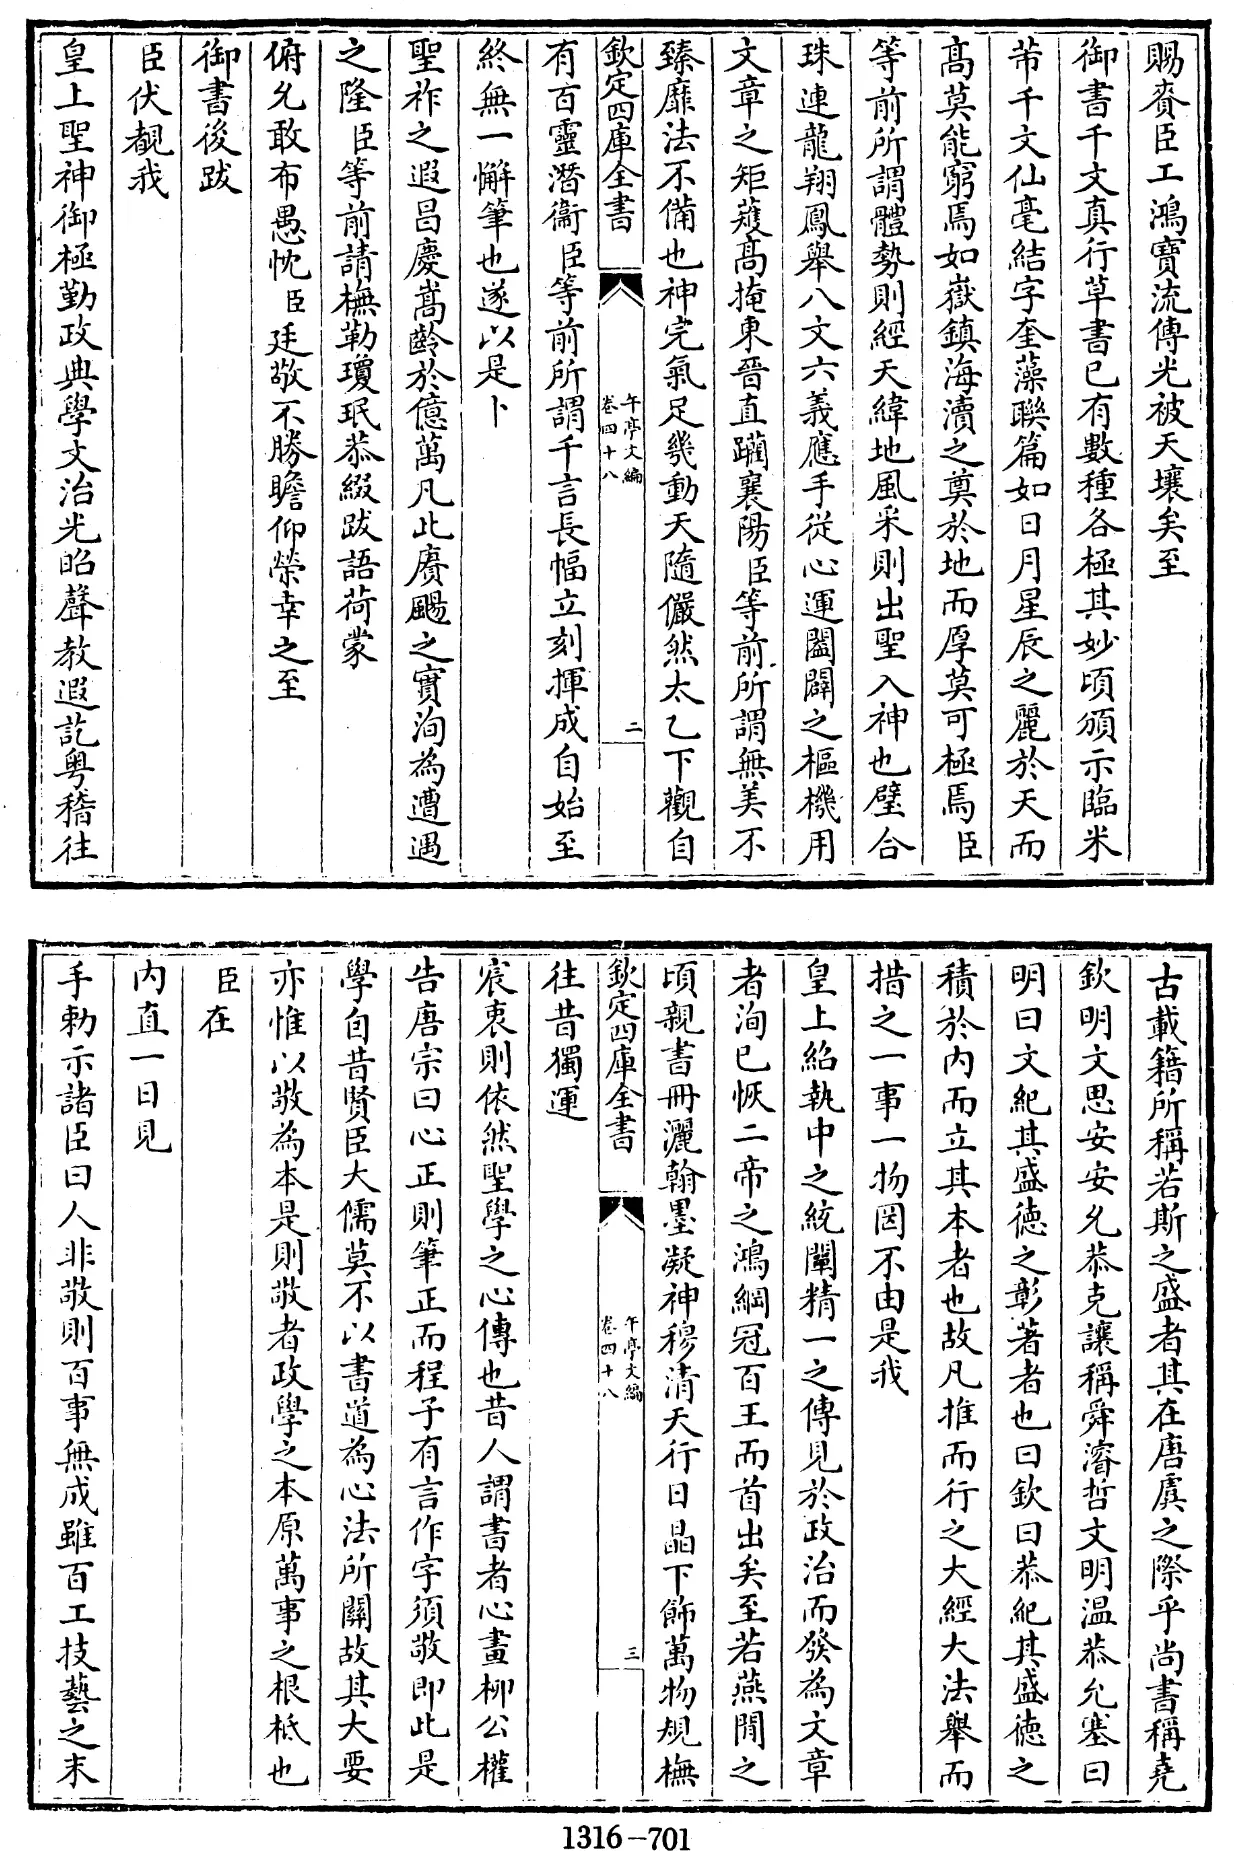 賜賚臣工鴻寶流傳光被天壤矣至
御書千文真行草書已有數種各極其妙頃頒示臨米
芾千文仙毫結字奎藻聯篇如日月星辰之麗於天而
高莫能窮焉如嶽鎮海瀆之奠於地而厚莫可極焉臣
等前所謂體勢則經天緯地風采則出聖入神也璧合
珠連龍翔鳳舉八文六義應手從心運闔闢之樞機用
文章之矩矱高掩東晉直躪襄陽臣等前所謂無美不
臻靡法不備也神完氣足幾動天隨儼然太乙下觀自
欽定四庫全書
午亭文編
卷四十八
二
有百靈潛衞臣等前所謂千言長幅立刻揮成自始至
終無一懈筆也遂以是卜
聖祚之遐昌慶嵩齡於億萬凡此賡颺之實洵為遭遇
之隆臣等前請橅勒瓊珉恭綴跋語荷蒙
俯允敢布愚忱臣廷敬不勝瞻仰榮幸之至
御書後跋
臣伏覩我
皇上聖神御極勤政典學文治光昭聲教遐訖粤稽往
古載籍所稱若斯之盛者其在唐虞之際乎尚書稱堯
欽明文思安安允恭克讓稱舜濬哲文明温恭允塞曰
明曰文紀其盛德之彰著者也曰欽曰恭紀其盛德之
積於内而立其本者也故凡推而行之大經大法舉而
措之一事一物罔不由是我
皇上紹執中之統闡精一之傳見於政治而發為文章
者洵已恢二帝之鴻綱冠百王而首出矣至若燕閒之
頃親書冊灑翰墨凝神穆清天行日晶下飾萬物規橅
欽定四庫全書
午亭文編
卷四十八
三
往昔獨運
宸衷則依然聖學之心傳也昔人謂書者心畫柳公權
告唐宗曰心正則筆正而程子有言作字須敬即此是
學自昔賢臣大儒莫不以書道為心法所關故其大要
亦惟以敬為本是則敬者政學之本原萬事之根柢也
臣在
内直一日見
手勅示諸臣曰人非敬則百事無成雖百工技藝之末
1316-701